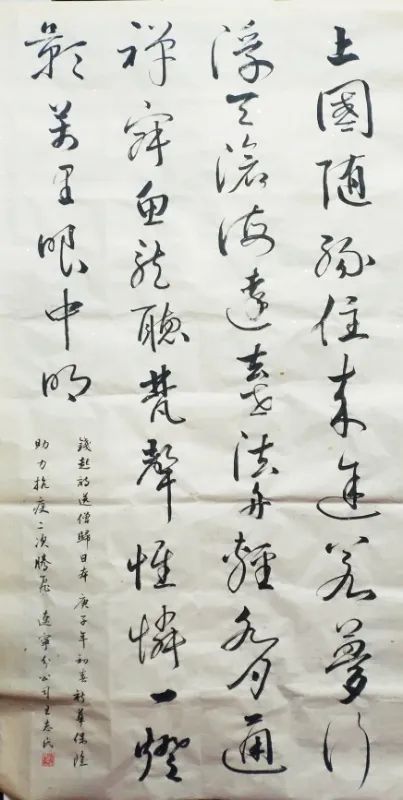 上國随緣住来途若夢行
浮天滄海遠去世法舟輕水月通
禅寂魚龍聽梵聲惟憐一燈
影萬里眼中明
錢起詩送僧歸日本 庚子年初春新華保險
助力抗疫二次騰飛 遼寧分公司王志